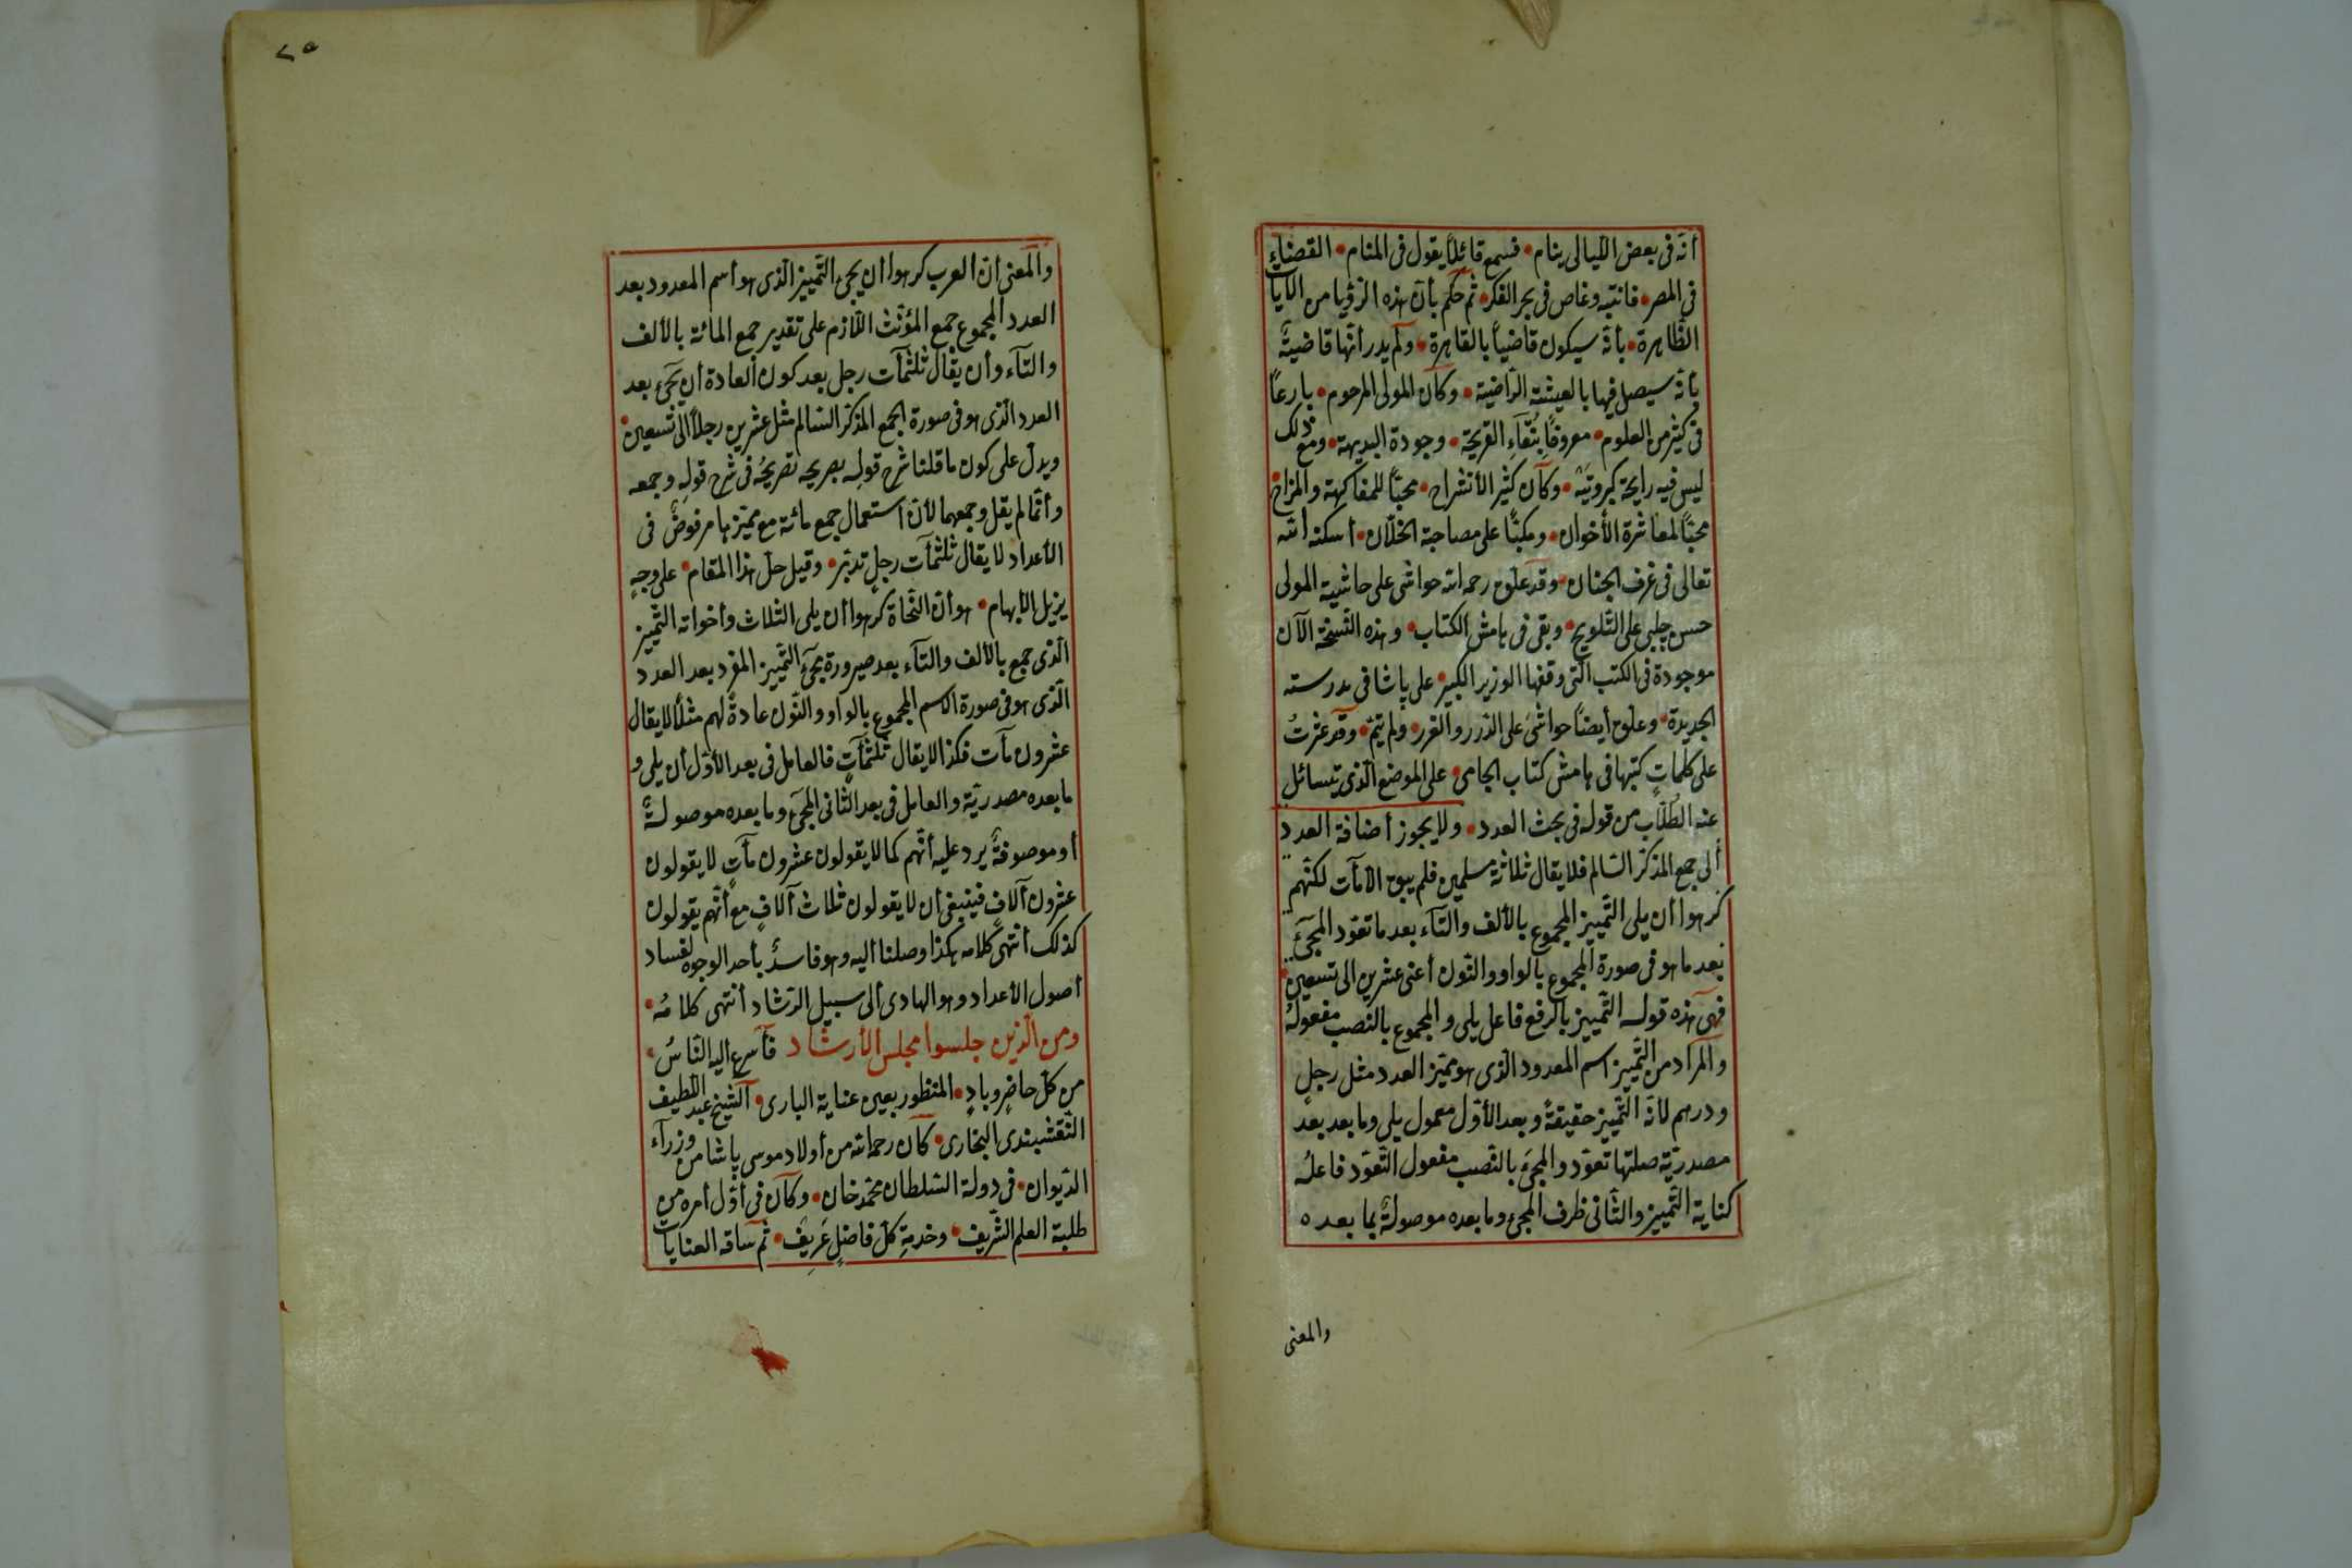 أنه فى بعض الليالى ينام • فسمع قائلا يقول فى المنام • القضاء
فى المصر • فانتبه وغاص فى بحر الفكر • ثم حكم بأن هذه الرؤيا من الآيات
الظاهرة • بأنه سيكون قاضيا بالقاهرة • ولم يدر أنها قاضية
بأنه سيصل فيها بالعيشة الراضية • وكان المولى المرحوم • بارعا
فى كثير من العلوم • معروفا بنقاء القريحة • وجودة البديهة • ومع ذلك
ليس فيه رايحة كبر وتيه • وكان كثير الأنشراح • محبا للمفاكهة والمزاح
محبا لمعاشرة الأخوان • ومكبا على مصاحبة الخلان • أسكنه الله
تعالى فى غرف الجنان • وقد علق رحمه الله حواشى على حاشية المولى
حسن چلبى على التلويح • وبقى فى هامش الكتاب • وهذه النسخة الآن
موجودة فى الكتب التى وقفها الوزير الكبير على پاشا فى مدرسته
الجديدة • وعلق أيضا حواشى على الدرر والغرر • ولم يتم • وقد عثرت
على كلمات كتبها فى هامش كتاب الجامى • على الموضع الذى يتسائل
عنه الطلاب من قوله فى بحث العدد • ولا يجوز أضافة العدد
ألى جمع المذكر السالم فلا يقال ثلاثة مسلمين فلم يبق الا مآت لكنهم
كرهوا أن يلى التمييز المجموع بالألف والتاء بعد ما تعود المجئ
بعد ما هو فى صورة المجموع بالواو والنون أعنى عشرين الى تسعين •
فهى هذه قوله التمييز بالرفع فاعل يلى والمجموع بالنصب مفعوله
والمراد من التمييز اسم المعدود الذى هو مميز العدد مثل رجل
ودرهم لأنه التمييز حقيقة وبعد الأول معمول يلى وما بعد بعد
مصدرية صلتها تعود والمجئ بالنصب مفعول التعود فاعله
كناية التمييز والثانى ظرف المجئ وما بعده موصولة بما بعده
والمعنى
٢٥
والمعنى أن العرب كرهوا أن يجئ التمييز الذى هو أسم المعدود بعد
العدد المجموع جمع المؤنث اللازم على تقدير جمع المائة بالألف
والتاء وأن يقال ثلثمآت رجل بعد كون العادة أن يجئ بعد
العدد الذى هو فى صورة الجمع المذكر السالم مثل عشرين رجلا الى تسعين •
ويدل على كون ما قلنا شرح قوله بصريحه تصريحه فى شرح قوله وجمعه
وأنما لم يقل وجمعهما لأن أستعمال جمع مائة مع مميزها مرفوض فى
الأعداد لا يقال ثلثمآت رجل تدبر • وقيل حل هذا المقام • على وجه
يزيل الأبهام • هو أن النحاة كرهوا أن يلى الثلاث وأخواته التمييز
الذى جمع بالألف والتاء بعد صيرورة مجئ التمييز المفرد بعد العدد
الذى هو فى صورة الاسم المجموع بالواو والنون عادة لهم مثلا لا يقال
عشرون مآت فكذا لا يقال ثلثمآت فالعامل فى بعد الأول أن يلى و
ما بعده مصدرية والعامل فى بعد الثانى المجئ وما بعده موصولة
أو موصوفة يرد عليه أنهم كما لا يقولون عشرون مآت لا يقولون
عشرون آلاف فينبغى أن لا يقولون ثلاث آلاف مع أنهم يقولون
كذلك أنتهى كلامه هكذا وصلنا أليه وهو فاسد بأحد الوجوه لفساد
أصول الأعداد وهو الهادى ألى سبيل الرشاد أنتهى كلامه •
ومن الذين جلسوا مجلس الأرشاد فأسرع اليه الناس •
من كل حاضر وباد • المنظور بعين عناية البارى • الشيخ عبد اللطيف
النقشبندى البخارى • كان رحمه الله من أولاد موسى پاشا من وزراء
الديوان • فى دولة السلطان محمد خان • وكان فى أول أمره من
طلبة العلم الشريف • وخدمة كل فاضل غريف • ثم ساقه العنايات